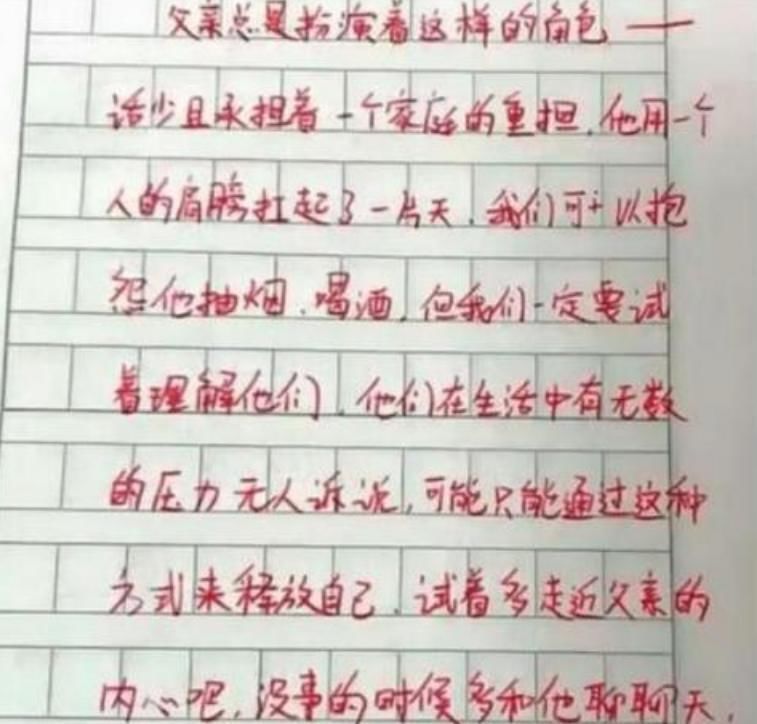 父亲总是扮演着这样的角色——
话少且承担着一个家庭的重担，他用一个
人的肩膀扛起了一片天，我们可以抱
怨他抽烟、喝酒，但我们一定要试
着理解他们，他们在生活中有无数
的压力无人诉说，可能只能通过这种
方式来释放自己，试着多走近父亲的
内心吧，没事的时候多和他聊聊天，